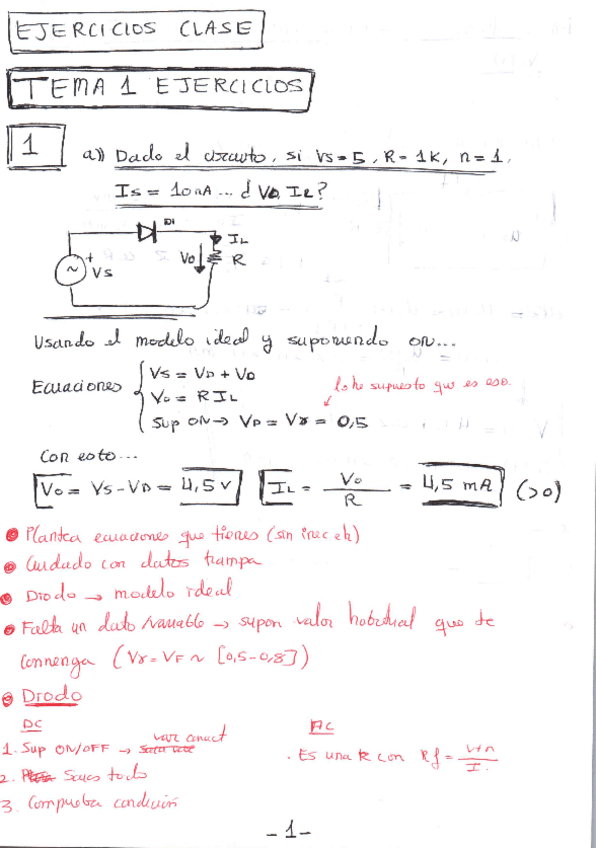 EJERCICIOS CLASE
TEMA 1 EJERCICIOS
1
a)) Dado el circuito, si Vs=5, R=1K, n=1,
Is = 10nA ... ¿ Vo, IL?
D1
IL
+
Vs
Vo
R
Usando el modelo ideal y suponiendo ON...
Ecuaciones
Vs = VD + Vo
Vo = R IL
Sup ON → VD = Vγ = 0,5
lo he supuesto que es eso.
Con esto...
Vo = Vs - VD = 4,5 V
IL = Vo / R = 4,5 mA (>0)
• Plantea ecuaciones que tienes (sin inec eh)
• Cuidado con datos trampa
• Diodo → modelo ideal
• Falta un dato/variable → supon valor habitual que te
convenga (Vγ = VF ~ [0,5-0,8])
• Diodo
DC
1. Sup ON/OFF → var conoct
2. Sacas todo
3. Comprueba condición
AC
. Es una R con Rf = VTn / I.
- 1 -